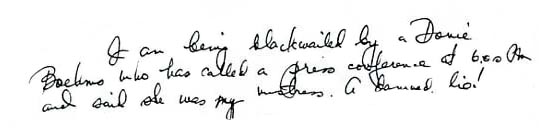 I am being blackmailed by a Donié
Boehms who has called a press conference at 6:00 PM
and said she was my mistress. A damned lie!